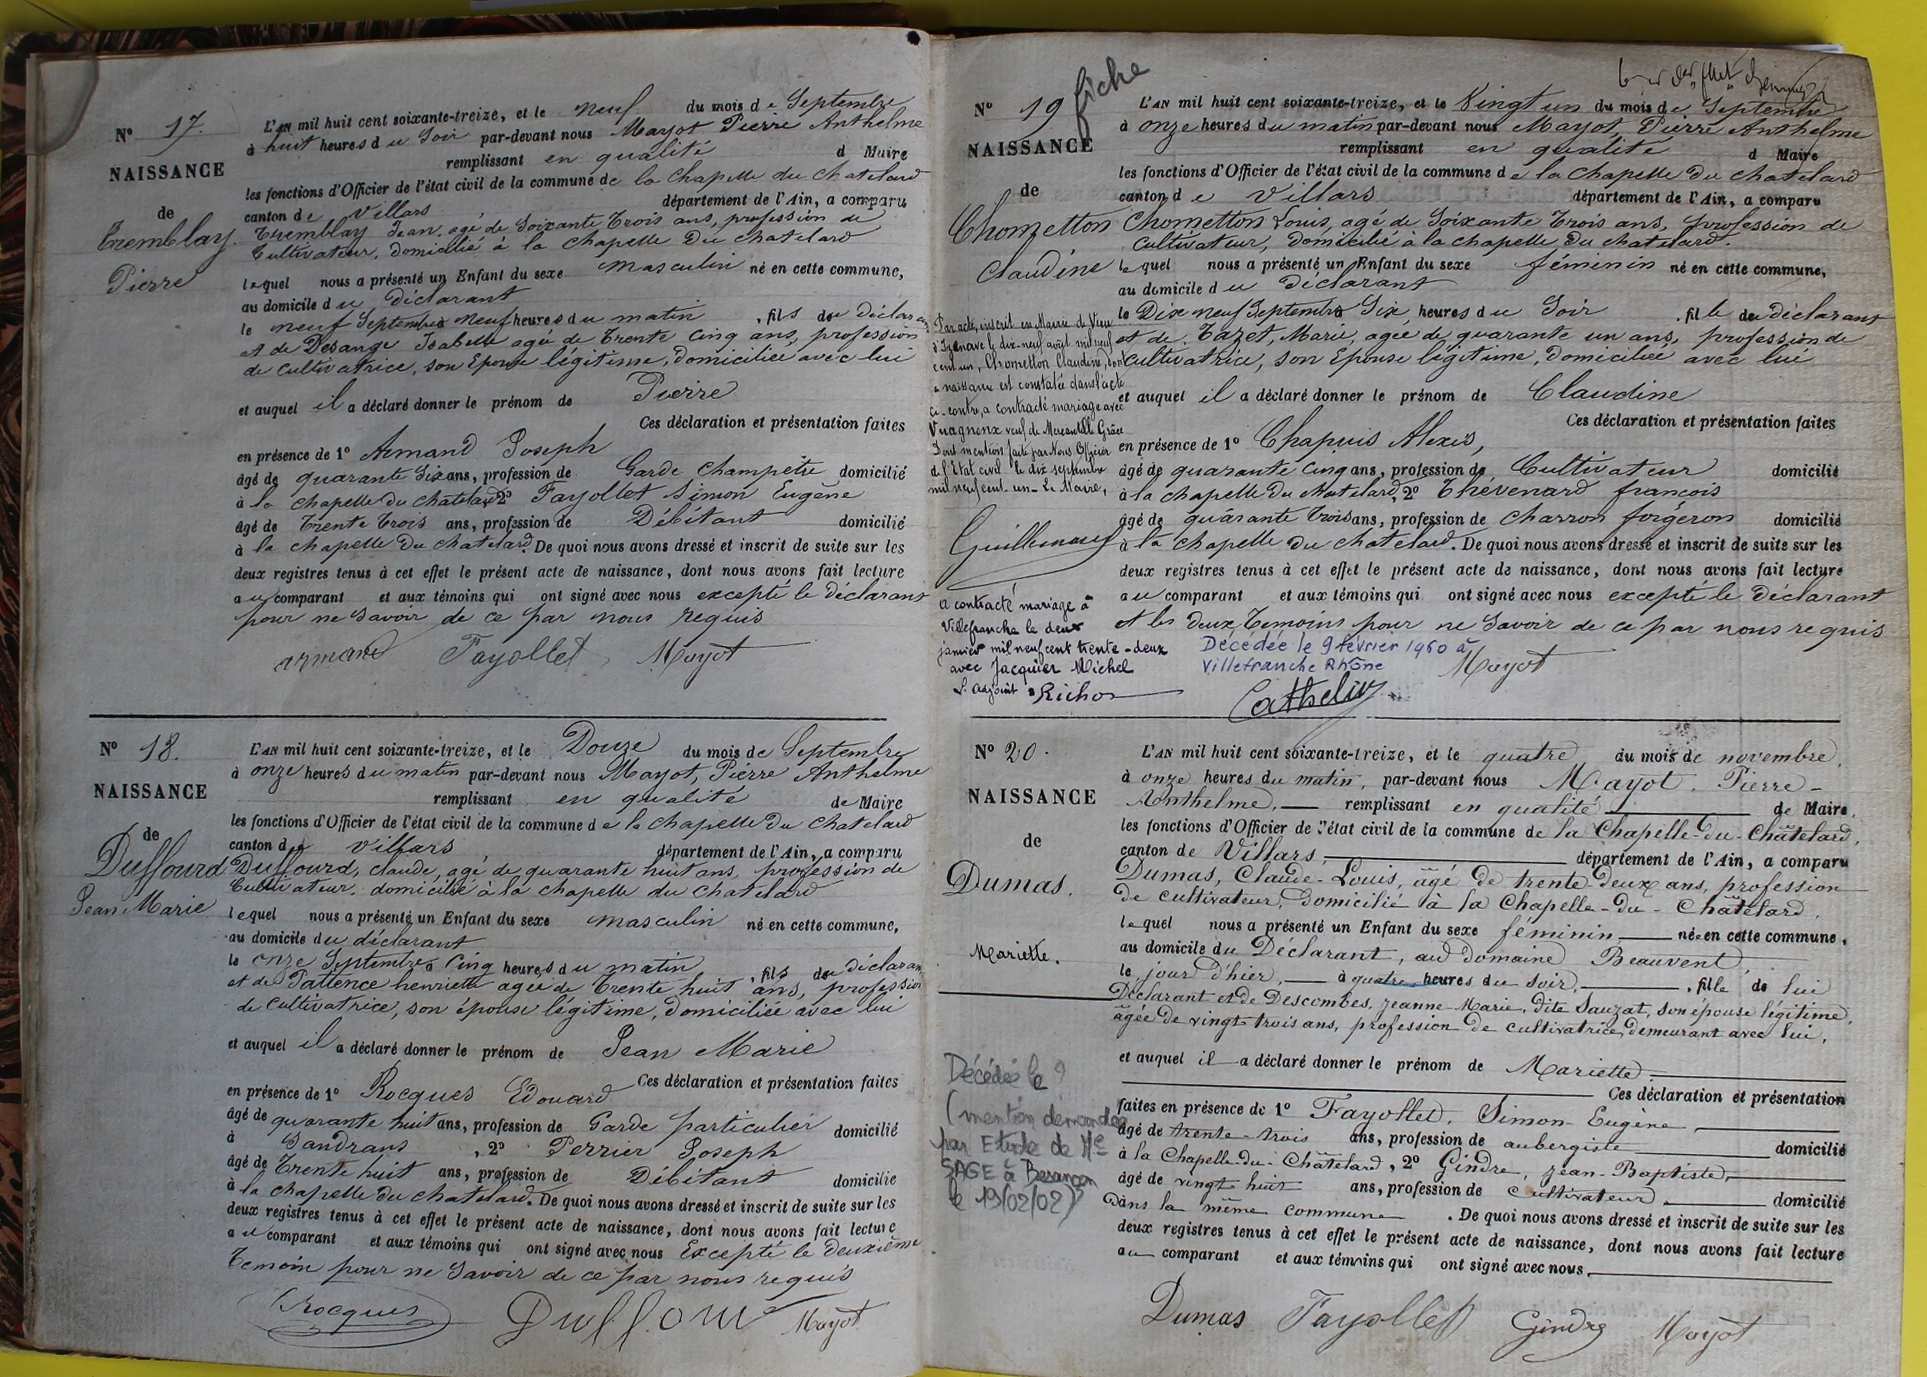 N° 17.
NAISSANCE
de
Tremblay
Pierre
L'AN mil huit cent soixante-treize, et le neuf du mois de Septembre
à huit heures du Soir par-devant nous Mayot Pierre Anthelme
remplissant en qualité d Maire
les fonctions d'Officier de l'état civil de la commune de la Chapelle du Chatelard
canton de Villars département de l'Ain, a comparu
Tremblay Jean, agé de Soixante trois ans, profession de
Cultivateur, domicilié à la Chapelle du Chatelard
lequel nous a présenté un Enfant du sexe masculin né en cette commune,
au domicile du déclarant
le neuf Septembre neuf heures du matin, fils du déclarant
et de Désange Isabelle agé de trente cinq ans, profession
de Cultivatrice, son Epouse légitime, domiciliée avec lui
et auquel il a déclaré donner le prénom de Pierre
Ces déclaration et présentation faites
en présence de 1° Armand Joseph
âgé de quarante six ans, profession de Garde Champêtre domicilié
à la chapelle du chatelard, 2° Fayollet Simon Eugène
âgé de trente trois ans, profession de Débitant domicilié
à la chapelle du chatelard. De quoi nous avons dressé et inscrit de suite sur les
deux registres tenus à cet effet le présent acte de naissance, dont nous avons fait lecture
au comparant et aux témoins qui ont signé avec nous excepté le déclarant
pour ne savoir de ce par nous requis
armand Fayollet Mayot
N° 18.
NAISSANCE
de
Duffourd
Jean Marie
L'AN mil huit cent soixante-treize, et le Douze du mois de Septembre
à onze heures du matin par-devant nous Mayot, Pierre Anthelme
remplissant en qualité de Maire
les fonctions d'Officier de l'état civil de la commune de la Chapelle du Chatelard
canton de Villars département de l'Ain, a comparu
Duffourd, claude, agé de quarante huit ans, profession de
Cultivateur domicilié à la chapelle du chatelard
lequel nous a présenté un Enfant du sexe masculin né en cette commune,
au domicile du déclarant
le onze Septembre à cinq heures du matin, fils du déclarant
et de Pattence henriette agée de trente huit ans, profession
de cultivatrice, son épouse légitime, domiciliée avec lui
et auquel il a déclaré donner le prénom de Jean Marie
Ces déclaration et présentation faites
en présence de 1° Rocques Edouard
âgé de quarante huit ans, profession de Garde particulier domicilié
à Sandrans, 2° Perrier Joseph
âgé de trente huit ans, profession de Débitant domicilié
à la chapelle du chatelard. De quoi nous avons dressé et inscrit de suite sur les
deux registres tenus à cet effet le présent acte de naissance, dont nous avons fait lecture
au comparant et aux témoins qui ont signé avec nous Excepté le deuxième
témoin pour ne savoir de ce par nous requis
Rocques Duffour Mayot
fiche
N° 19
NAISSANCE
de
Chometton
Claudine
L'AN mil huit cent soixante-treize, et le Vingt un du mois de Septembre
à onze heures du matin par-devant nous Mayot, Pierre Anthelme
remplissant en qualité d Maire
les fonctions d'Officier de l'état civil de la commune de la Chapelle du Chatelard
canton de Villars département de l'Ain, a comparu
Chometton Louis, agé de Soixante trois ans, profession de
cultivateur, domicilié à la chapelle du chatelard.
lequel nous a présenté un Enfant du sexe féminin né en cette commune,
au domicile du déclarant
le Dix neuf Septembre Six heures du Soir, fille du déclarant
et de Tazet, Marie, agée de quarante un ans, profession de
cultivatrice, son Epouse légitime, domiciliée avec lui
et auquel il a déclaré donner le prénom de Claudine
Ces déclaration et présentation faites
en présence de 1° Chapuis Alexis,
âgé de quarante cinq ans, profession de Cultivateur domicilié
à la chapelle du chatelard, 2° Thévenard françois
âgé de quarante trois ans, profession de charron forgeron domicilié
à la chapelle du chatelard. De quoi nous avons dressé et inscrit de suite sur les
deux registres tenus à cet effet le présent acte de naissance, dont nous avons fait lecture
au comparant et aux témoins qui ont signé avec nous excepté le déclarant
et les deux témoins pour ne savoir de ce par nous requis
Mayot
Par acte, inscrit en Mairie de Vieu
d'Izenave le dix-neuf août mil neuf
cent un, Chometton Claudine, dont
la naissance est constatée dans l'acte
ci-contre, a contracté mariage avec
Vuagnoux veuf de
Dont mention faite par Nous Officier
de l'Etat civil le dix septembre
mil neuf cent un - Le Maire,
Guillemaud
a contracté mariage à
Villefranche le deux
janvier mil neuf cent trente-deux
avec Jacquier Michel
L'adjoint Richon
Décédée le 9 février 1960 à
Villefranche Rhône
Cathelin
N° 20.
NAISSANCE
de
Dumas.
Mariette.
L'AN mil huit cent soixante-treize, et le quatre du mois de novembre,
à onze heures du matin, par-devant nous Mayot, Pierre-
Anthelme, remplissant en qualité de Maire
les fonctions d'Officier de l'état civil de la commune de la Chapelle-du-Châtelard,
canton de Villars, département de l'Ain, a comparu
Dumas, Claude-Louis, âgé de trente deux ans, profession
de cultivateur, domicilié à la Chapelle-du-Châtelard,
lequel nous a présenté un Enfant du sexe féminin née en cette commune,
au domicile du Déclarant, au domaine Beauvent,
le jour d'hier, à quatre heures du soir, fille de lui
Déclarant et de Descombes, Jeanne-Marie, dite Sauzat, son épouse légitime,
âgée de vingt trois ans, profession de cultivatrice, demeurant avec lui,
et auquel il a déclaré donner le prénom de Mariette
Ces déclaration et présentation
faites en présence de 1° Fayollet, Simon-Eugène
âgé de trente-trois ans, profession de aubergiste domicilié
à la Chapelle-du-Châtelard, 2° Gindre, Jean-Baptiste,
âgé de vingt huit ans, profession de Cultivateur domicilié
dans la même commune. De quoi nous avons dressé et inscrit de suite sur les
deux registres tenus à cet effet le présent acte de naissance, dont nous avons fait lecture
au comparant et aux témoins qui ont signé avec nous,
Dumas Fayollet Gindre Mayot
Décédée le ?
(mention demandée
par Etude de Me
SAGE à Besançon
le 19/02/02)